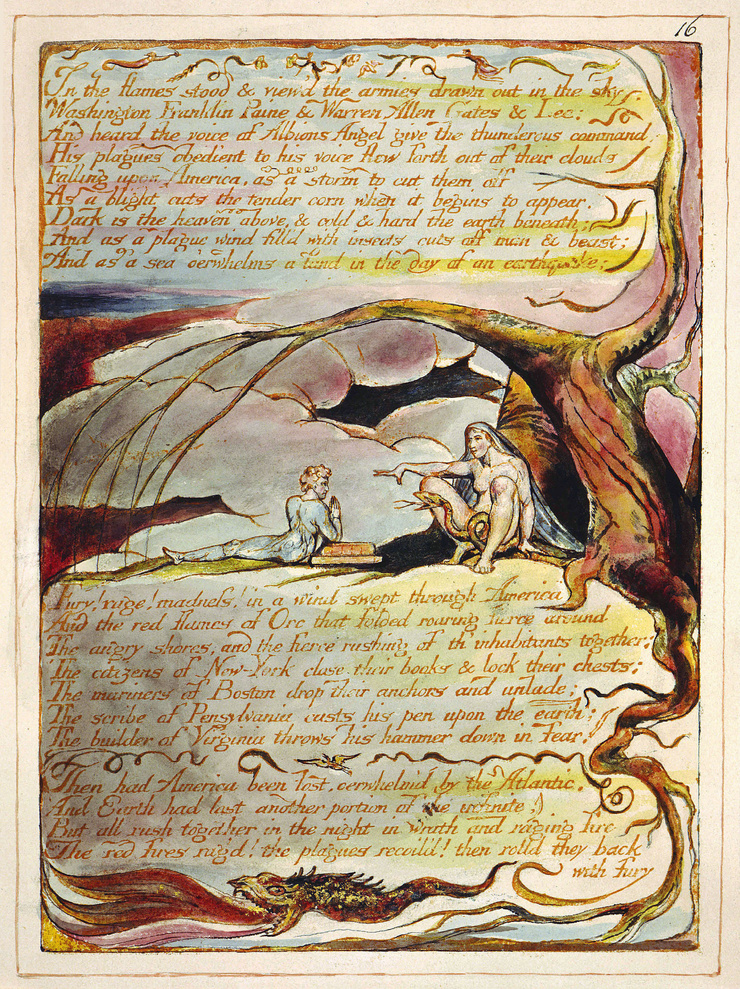 16
In the flames stood & view'd the armies drawn out in the sky
Washington Franklin Paine & Warren Allen Gates & Lee:
And heard the voice of Albions Angel give the thunderous command:
His plagues obedient to his voice flew forth out of their clouds
Falling upon America, as a storm to cut them off
As a blight cuts the tender corn when it begins to appear.
Dark is the heaven above, & cold & hard the earth beneath;
And as a plague wind fill'd with insects cuts off man & beast;
And as a sea o'erwhelms a land in the day of an earthquake;
Fury! rage! madness! in a wind swept through America
And the red flames of Orc that folded roaring fierce around
The angry shores, and the fierce rushing of th'inhabitants together:
The citizens of New-York close their books & lock their chests;
The mariners of Boston drop their anchors and unlade;
The scribe of Pensylvania casts his pen upon the earth;
The builder of Virginia throws his hammer down in fear.
Then had America been lost, o'erwhelm'd by the Atlantic,
And Earth had lost another portion of the infinite,
But all rush together in the night in wrath and raging fire
The red fires rag'd! the plagues recoil'd! then rolld they back
with fury